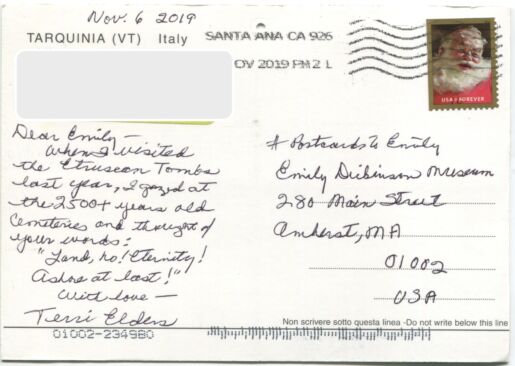 Nov. 6 2019
TARQUINIA (VT) Italy
SANTA ANA CA 926
OV 2019 PM 2 L
USA FOREVER
Dear Emily—
When I visited
the Etruscan Tombs
last year, I gazed at
the 2500+ years old
cemeteries and thought of
your words:
"Land, ho! Eternity!
Ashore at last!"
With love —
Terri Elders
01002-234980
# Postcards to Emily
Emily Dickinson Museum
280 Main Street
Amherst, MA
01002
USA
Non scrivere sotto questa linea - Do not write below this line